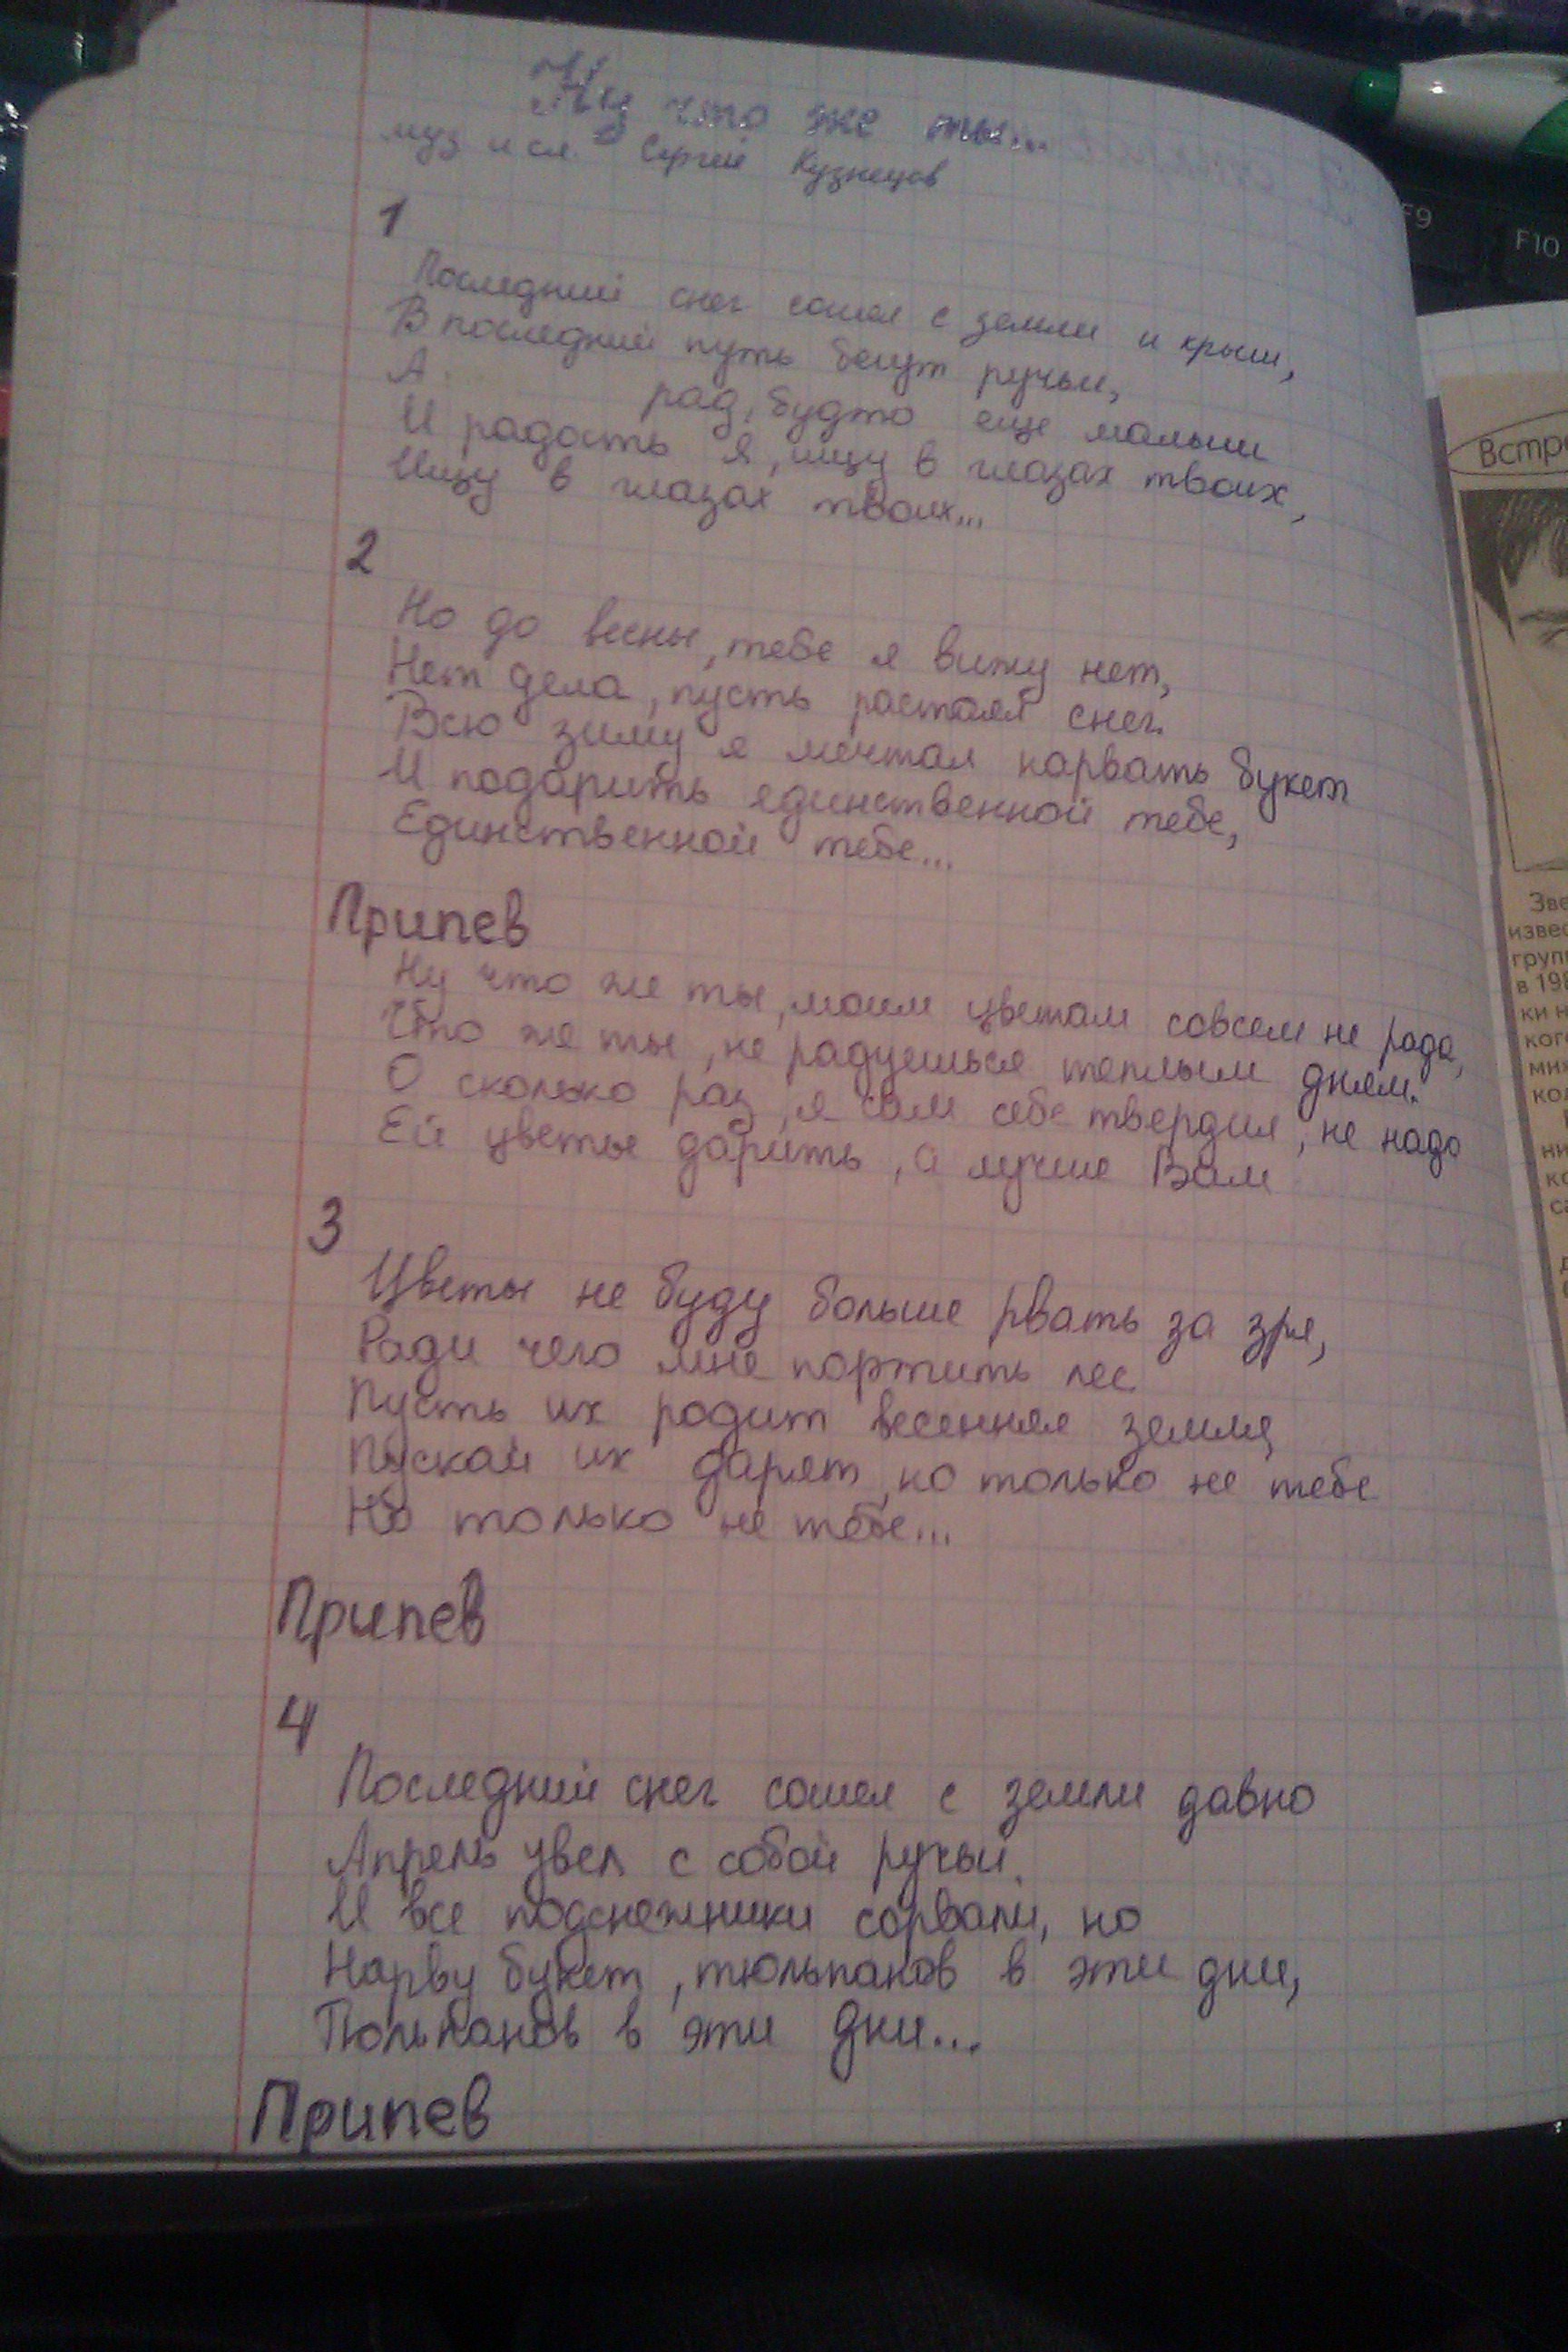 Ну что же ты...
муз и сл. Сергей Кузнецов
1
Последний снег сошел с земли и крыш,
В последний путь бегут ручьи,
А рад, будто еще малыш
И радость я, ищу в глазах твоих,
Ищу в глазах твоих...
2
Но до весны, тебе я вижу нет,
Нет дела, пусть растаял снег.
Всю зиму я мечтал нарвать букет
И подарить единственной тебе,
Единственной тебе...
Припев
Ну что же ты, моим цветам совсем не рада,
Что же ты, не радуешься теплым дням.
О сколько раз, я сам себе твердил, не надо
Ей цветы дарить, а лучше Вам
3
Цветы не буду больше рвать за зря,
Ради чего мне портить лес.
Пусть их родит весенняя земля,
Пускай их дарят, но только не тебе
Но только не тебе...
Припев
4
Последний снег сошел с земли давно
Апрель увел с собой ручьи.
И все подснежники сорвали, но
Нарву букет, тюльпанов в эти дни,
Тюльпанов в эти дни...
Припев
F9
F10
Встре
Зве
извес
груп
в 198
ки н
ког
мик
кол
ни
ко
са